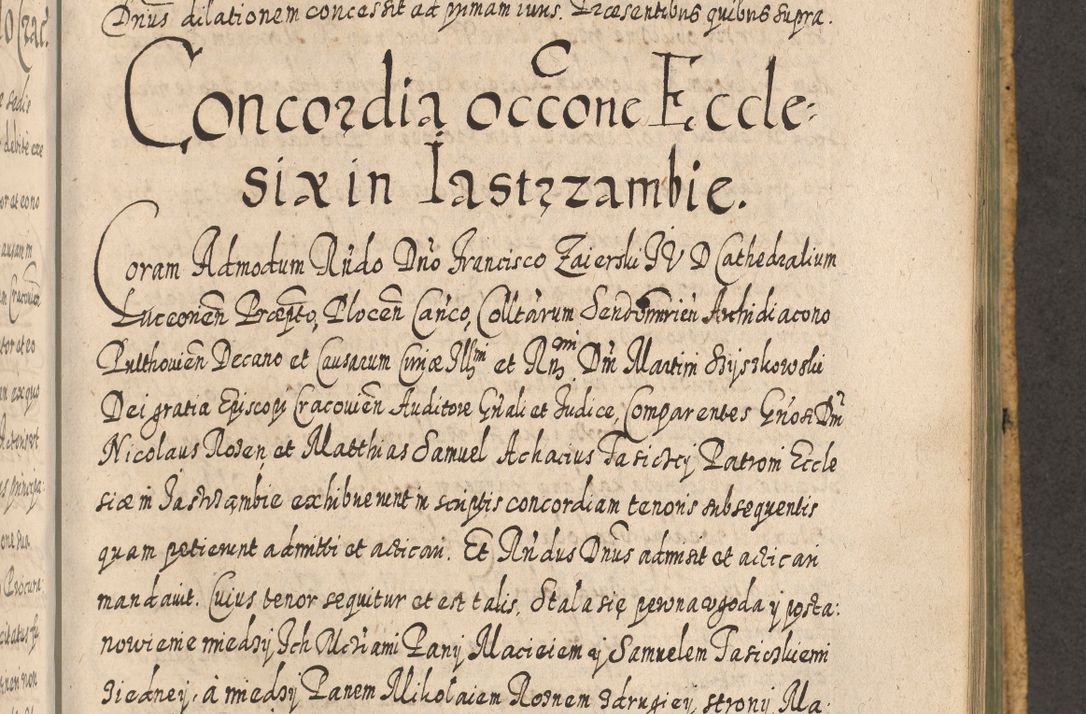 Dnus dilationem concessit ad primam iuris. Praesentibus quibus supra.
Concordia occone Eccle-
siæ in Iastrzambie.
Coram Admodum Rndo Dno Francisco Zaierski IV D Cathedralium
Luceonen Prcepto, Plocen Canco, Colltarum Sendomirien Archidiacono
Pulthouien Decano et Causarum Curiæ Illmi et Rmi Dni Martini Szyszkowski
Dei gratia Episcopi Cracouien Auditore Gnali et Iudice, Comparentes Gnosi Dni
Nicolaus Rosen et Matthias Samuel Achacius Jasiczkij Patroni Eccle
siæ in Jastrzembie exhibuerunt in scriptis concordiam tenoris subsequentis
quam petierunt admitti et acticari. Et Rndus Dnus admisit et acticari
mandauit. Cuius tenor sequitur et est talis. Stala się pewna vgoda y posta:
nowienie miedzy Ich Mciami Pany Macieiem y Samuelem Jasiczkiemi
z iedney, à miedzy Panem Mikolaiem Roznem z drugiey strony Ma: